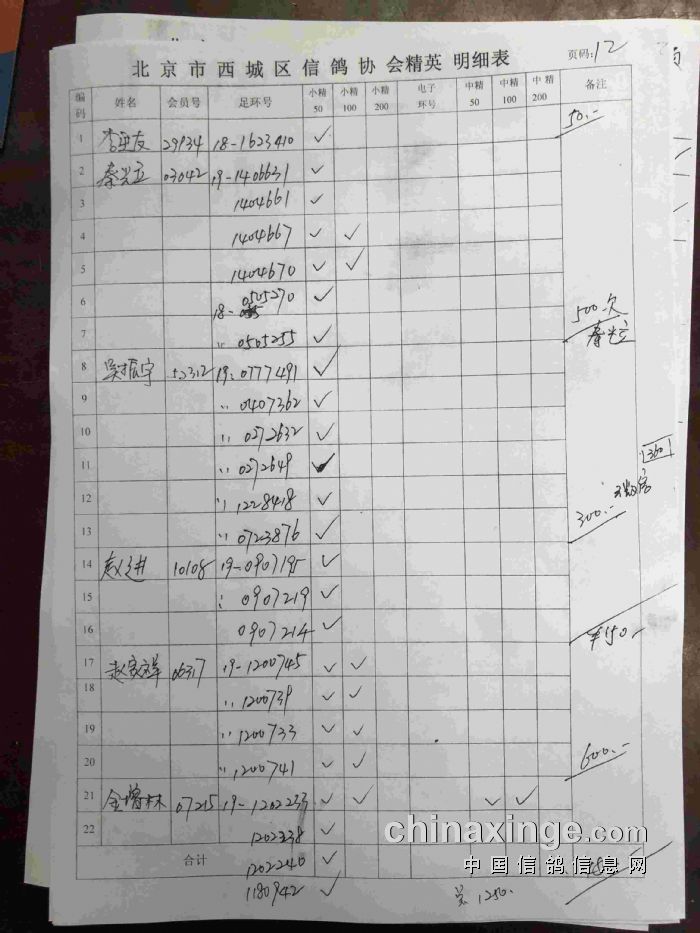 北京市西城区信鸽协会精英 明细表 页码:12
编码 姓名 会员号 足环号 小精50 小精100 小精200 电子环号 中精50 中精100 中精200 备注
1 李亚友 29134 18-1623410 ✓ 50.-
2 秦兴立 03042 19-1406631 ✓
3 1404661 ✓
4 1404667 ✓ ✓
5 1404670 ✓ ✓
6 18- 0505270 ✓ 500.欠
7 〃 0505255 ✓ 秦兴立
8 吴振宇 52312 19:0777491 ✓
9 〃 0407362 ✓
10 〃 0272632 ✓
11 〃 0272649 ✓ 1360
12 〃 1228418 ✓
13 〃 0723876 ✓ 300.-
14 赵进 10108 19-0907195 ✓
15 : 0907219 ✓
16 0907214 ✓ ¥150.-
17 06317 19-1200745 ✓ ✓
18 〃 1200739 ✓ ✓
19 〃 1200733 ✓ ✓
20 〃 1200741 ✓ ✓ 600.-
21 金增林 07215 19-1202233 ✓ ✓ ✓ ✓
22 1202238 ✓
合计 1202240 ✓
1180942 ✓ 1250.
chinaxinge.com
中国信鸽信息网